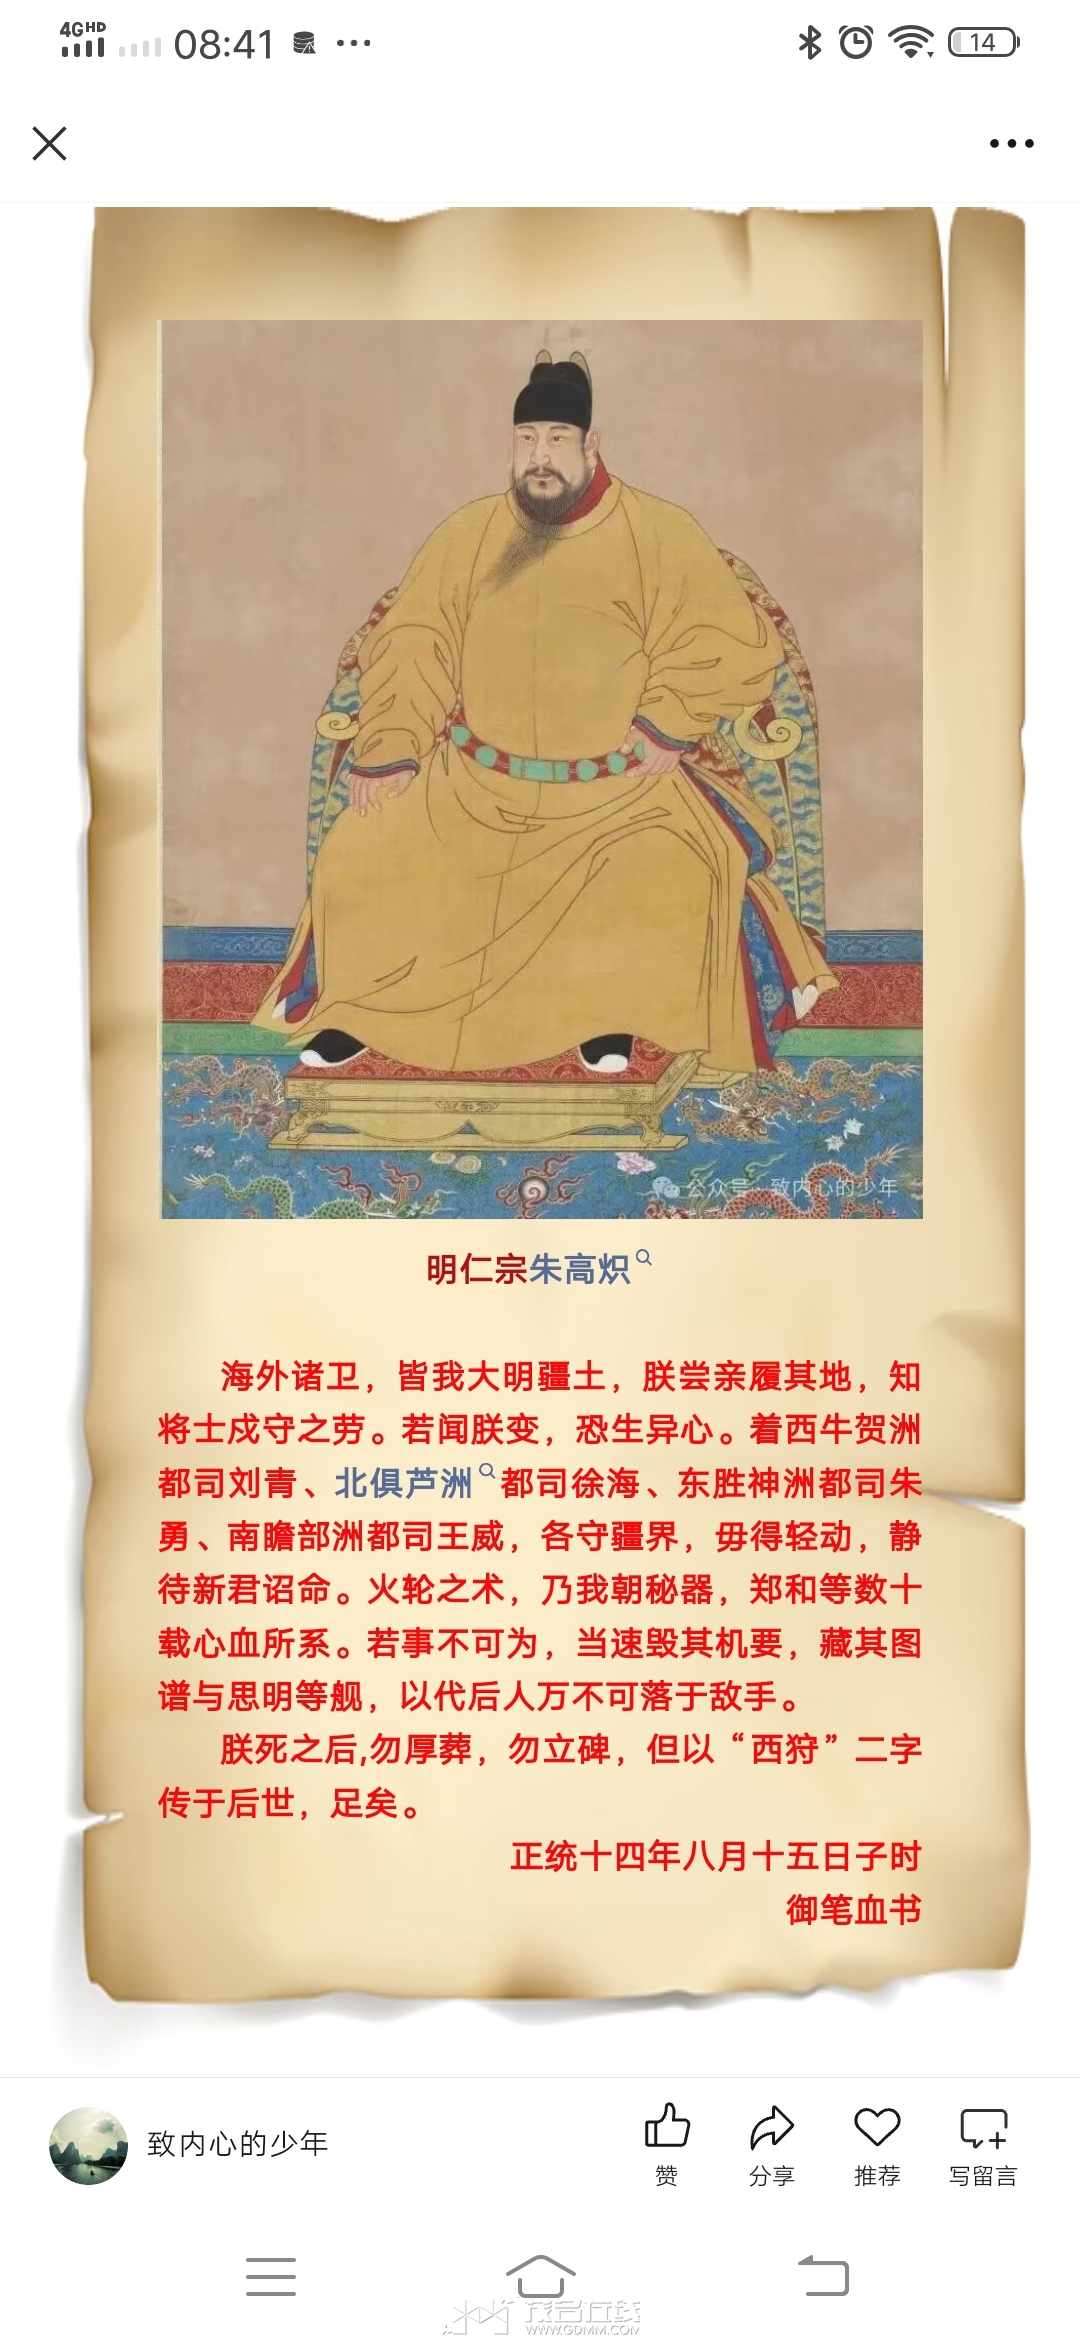 4G HD 08:41 14
公众号 · 致内心的少年
明仁宗朱高炽
海外诸卫，皆我大明疆土，朕尝亲履其地，知
将士戍守之劳。若闻朕变，恐生异心。着西牛贺洲
都司刘青、北俱芦洲都司徐海、东胜神洲都司朱
勇、南瞻部洲都司王威，各守疆界，毋得轻动，静
待新君诏命。火轮之术，乃我朝秘器，郑和等数十
载心血所系。若事不可为，当速毁其机要，藏其图
谱与思明等舰，以代后人万不可落于敌手。
朕死之后,勿厚葬，勿立碑，但以“西狩”二字
传于后世，足矣。
正统十四年八月十五日子时
御笔血书
致内心的少年
赞 分享 推荐 写留言
茂名在线
WWW.GDMM.COM